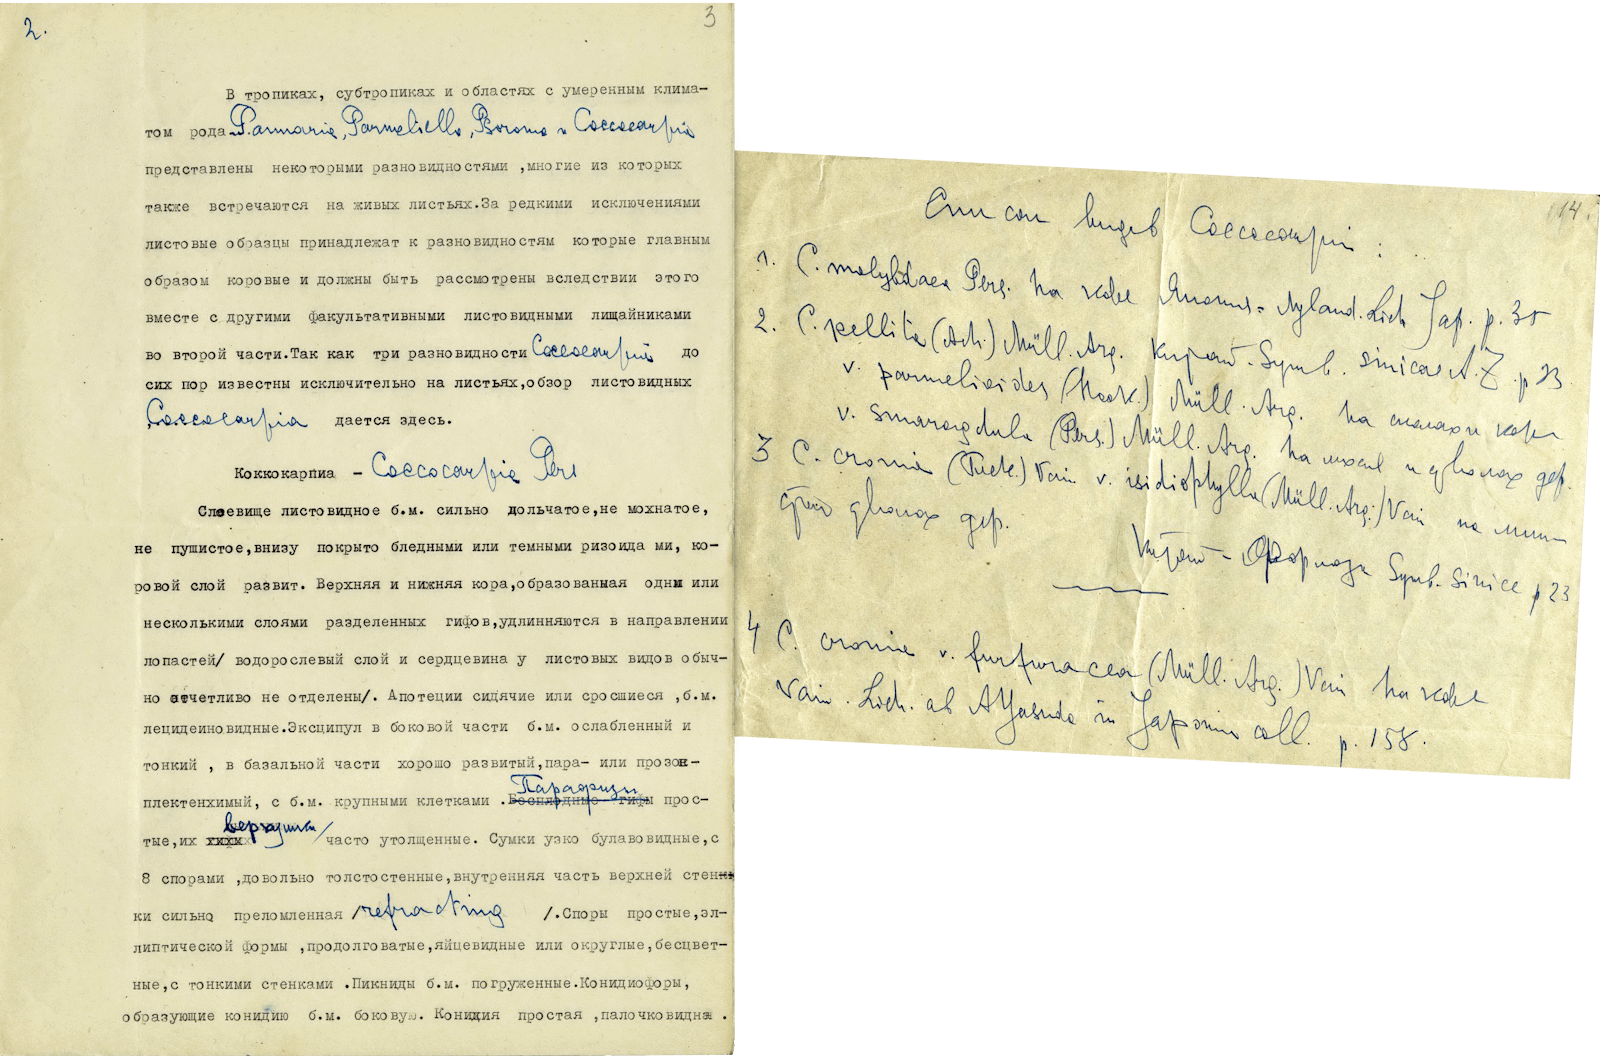 2.
3
В тропиках, субтропиках и областях с умеренным клима-
том рода Pannaria, Parmeliella, Psoroma и Coccocarpia
представлены некоторыми разновидностями ,многие из которых
также встречаются на живых листьях.За редкими исключениями
листовые образцы принадлежат к разновидностям которые главным
образом коровые и должны быть рассмотрены вследствии этого
вместе с другими факультативными листовидными лищайниками
во второй части.Так как три разновидности Coccocarpia до
сих пор известны исключительно на листьях,обзор листовидных
Coccocarpia дается здесь.
Коккокарпиа - Coccocarpia Pers
Слоевище листовидное б.м. сильно дольчатое,не мохнатое,
не пушистое,внизу покрыто бледными или темными ризоида ми, ко-
ровой слой развит. Верхняя и нижняя кора,образованная одним или
несколькими слоями разделенных гифов,удлинняются в направлении
лопастей/ водорослевый слой и сердцевина у листовых видов обыч-
но отчетливо не отделены/. Апотеции сидячие или сросшиеся ,б.м.
лецидеиновидные.Эксципул в боковой части б.м. ослабленный и
тонкий , в базальной части хорошо развитый,пара- или прозон-
плектенхимый, с б.м. крупными клетками .Бесплодные гифы Парафизы прос-
тые,их верхушки/ часто утолщенные. Сумки узко булавовидные,с
8 спорами ,довольно толстостенные,внутренняя часть верхней стен
ки сильно преломленная /refracting /.Споры простые,эл-
липтической формы ,продолговатые,яйцевидные или округлые,бесцвет-
ные,с тонкими стенками .Пикниды б.м. погруженные.Конидиофоры,
образующие конидию б.м. боковую. Конидия простая ,палочковидная .
114.
Список видов Coccocarpia :
1. C. molybdaea Pers. на коже Nyland. Lich Jap. p. 35
2. C. pellita (Ach.) Müll. Arg. Китай - Symb. sinicae A.Z. p 23.
v. parmelioides (Hook.) Müll. Arg. на скалах и коре
v. smaragdula (Pers.) Müll. Arg. на мхах и стволах дер.
3 C. cronia (Tuck.) Vain v. isidiophylla (Müll. Arg.) Vain на
стволах дер.
Китай - Формоза Symb. Sinice p 23
4 C. cronia v. furfuracea (Müll. Arg.) Vain на коже
Vain. Lich. ab A Yasuda in Japonia coll. p. 158.